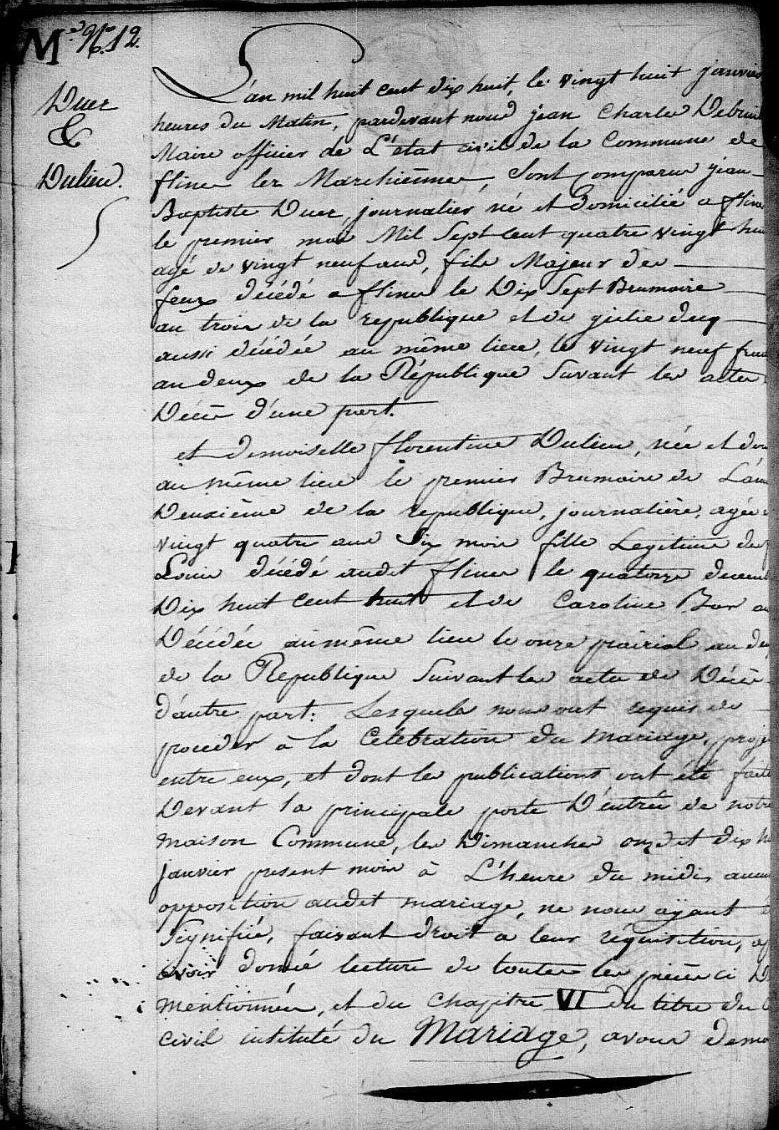 M.ge N.o 12.
Duez
&
Dulieu.
L'an mil huit cent dix huit, le vingt huit janvier
heures du Matin, pardevant nous jean Charle
Maire officier de L'état civil de la Commune de
flines lez Marchiennes, Sont comparus jean
Baptiste Duez, journalier né et domicilié a flines
le premier mai Mil Sept Cent quatre vingt huit
agé de vingt neuf ans, fils Majeur des
feux décédé a flines le Dix Sept Brumaire
an trois de la republique et de
aussi décédée au même lieu, le vingt neuf
an deux de la Republique Suvant les actes
Décès d'une part.
et demoiselle florentine Dulieu, née et
au même lieu le premier Brumaire de L'an
Deuxième de la republique, journalière, agée
vingt quatre ans Six mois fille Legitime de
Louis décédé audit flines le quatorze
Dix huit Cent huit et de Caroline
Décédée au même lieu le onze prairial an
de la Republique Suivant les actes de Décès
d'autre part: Lesquels nous ont requis de
proceder à la Célébration du Mariage,
entre eux, et dont les publications ont été
Devant la principale porte D'entrée de notre
Maison Commune, les Dimanches onze et dix
janvier present mois à L'heure du midi,
opposition audit mariage, ne nous ayant
Signifié, faisant droit a leur réquisition,
avoir donné lecture de toutes les pièces ci
mentionnées, et du Chapitre VI du titre du
civil intitulé du Mariage, avons